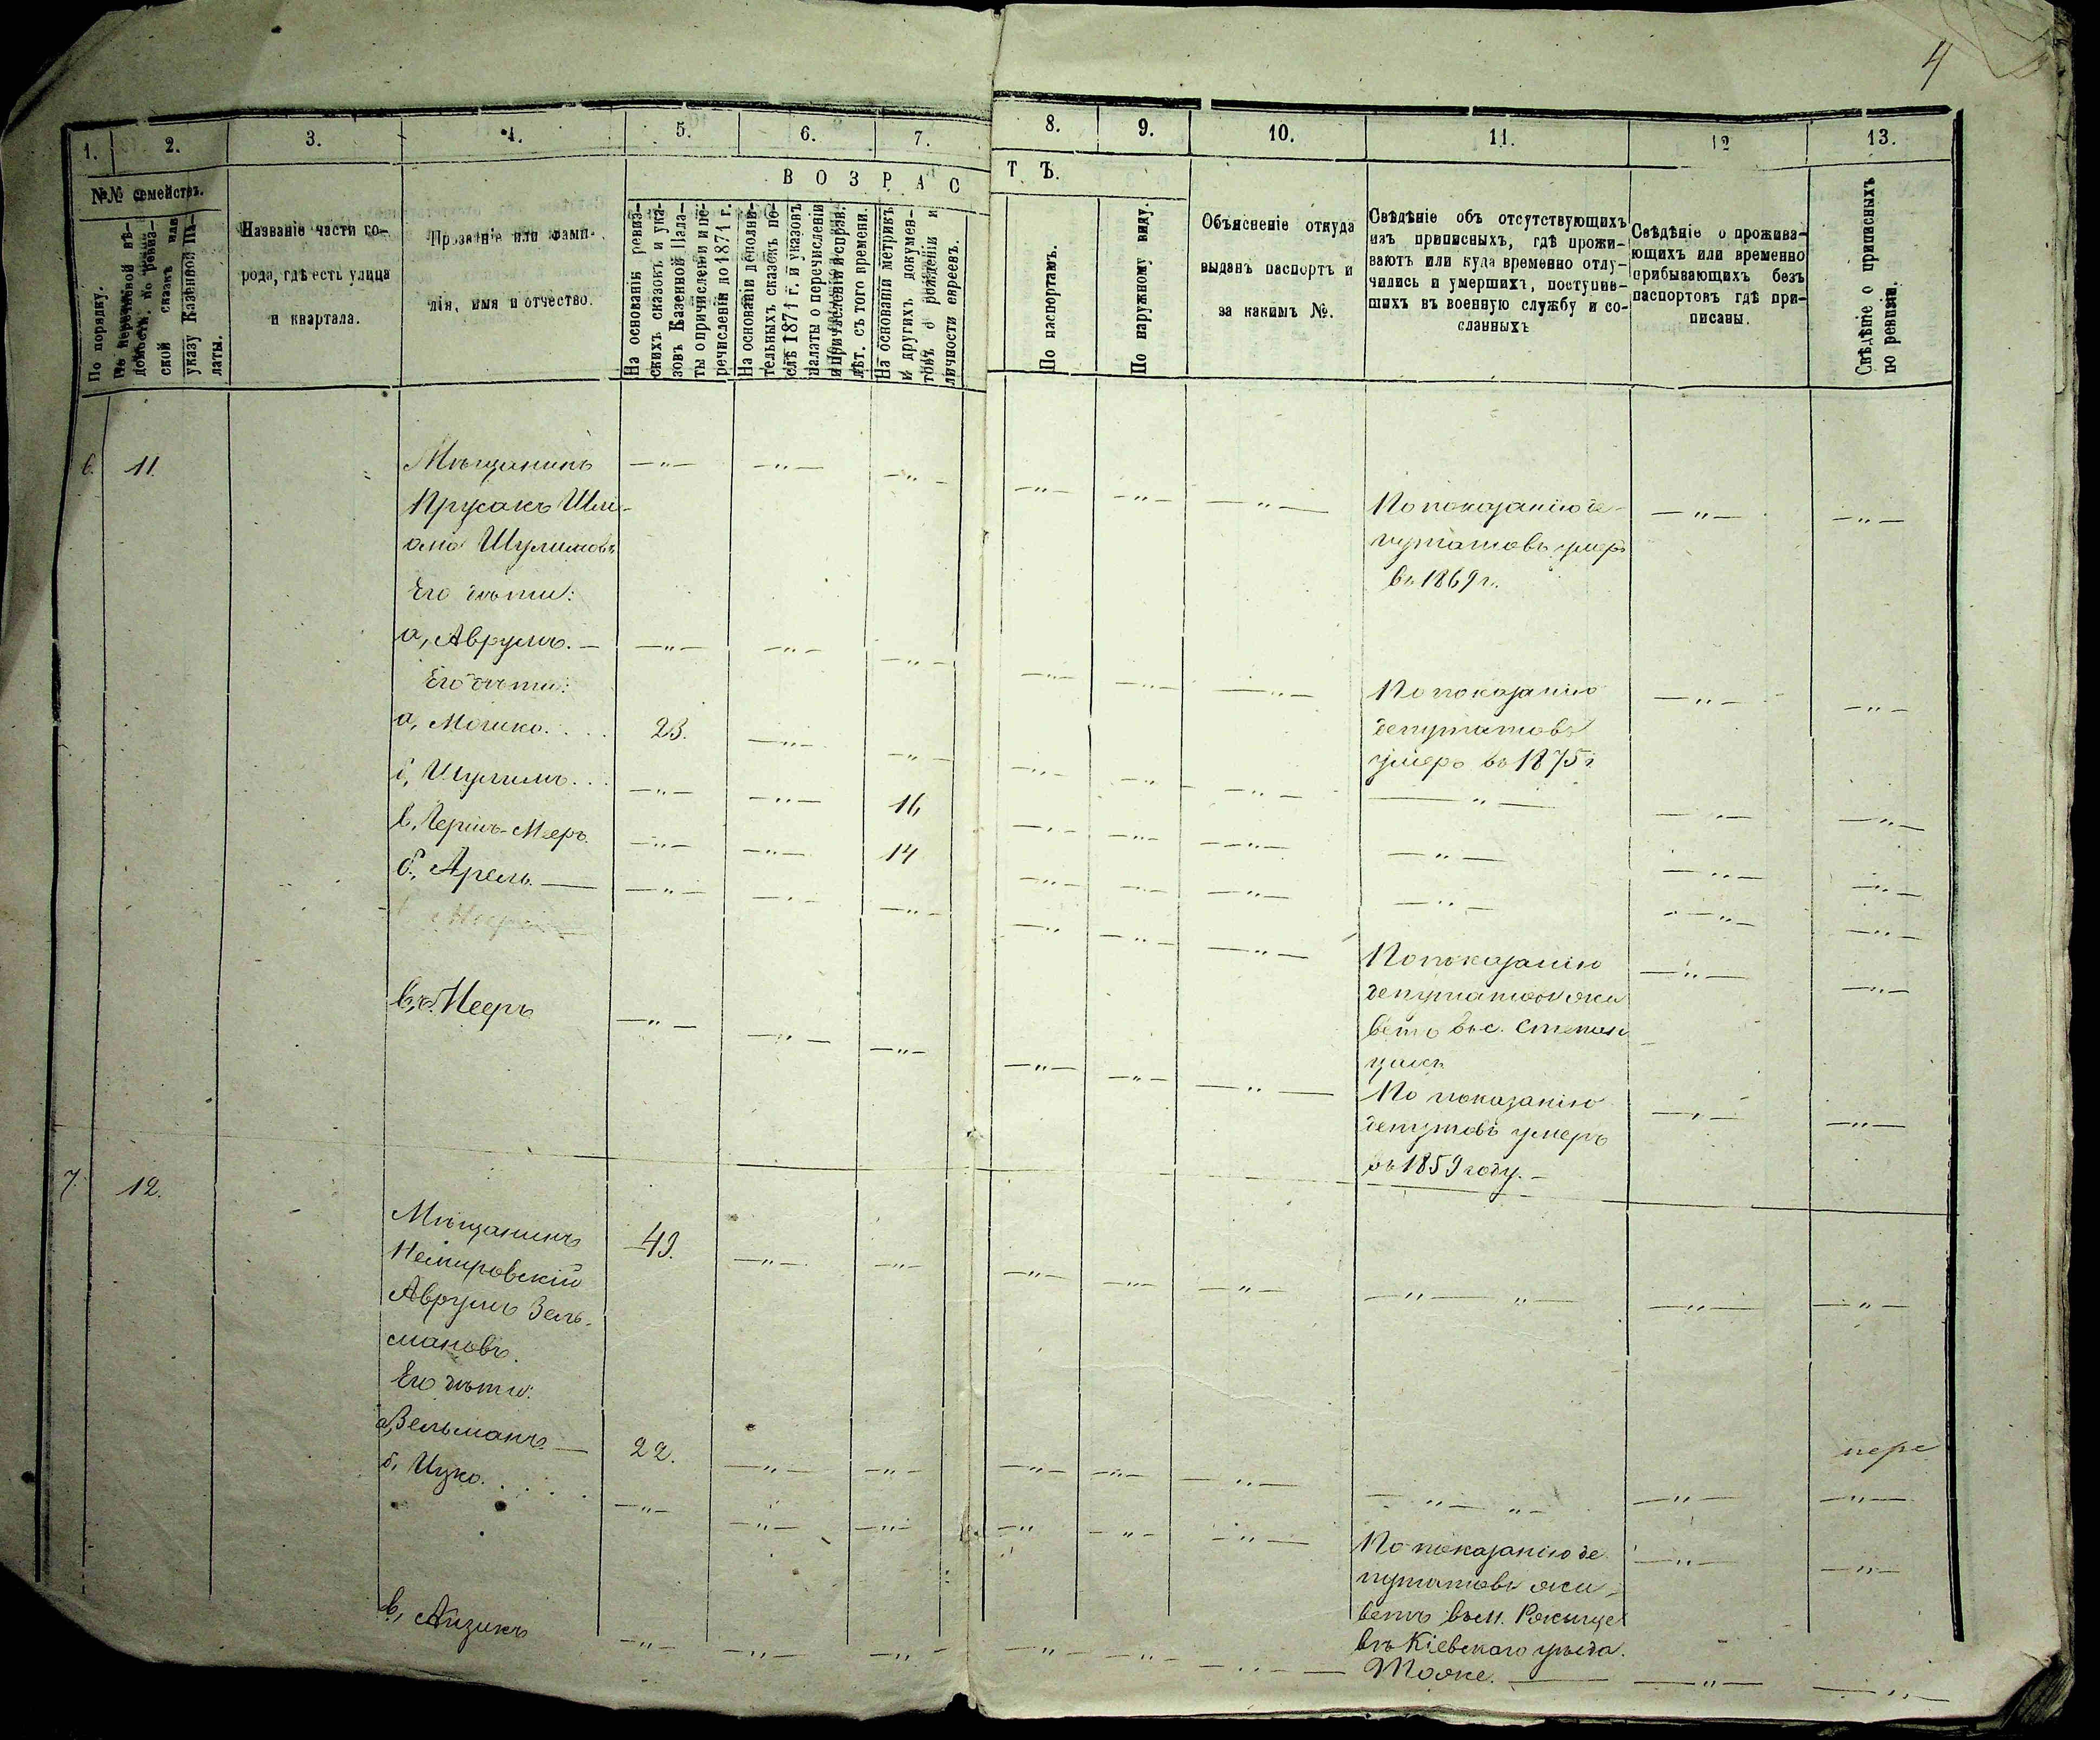 4
1.
2.
3.
4.
5.
6.
7.
8.
9.
10.
11.
12
13.
№№ семействъ.
По порядку.
По перечневой вѣ-
домости, по ревиз-
ской сказкѣ или
указу Казенной Па-
латы.
Названіе части го-
рода, гдѣ есть улица
и квартала.
Прозваніе или фами-
лія, имя и отчество.
ВОЗРАС
ТЪ.
На основаніи ревиз-
скихъ сказокъ и ука-
зовъ Казенной Пала-
ты о причисленіи и пе-
речисленіи до 1871 г.
На основаніи дополни-
тельныхъ сказокъ по-
слѣ 1871 г. и указовъ
палаты о перечисленіи
и причисленіи исправ.
лѣт. съ того времени.
На основаніи метрикъ
и другихъ докумен-
товъ о рожденіи и
личности евреевъ.
По паспортамъ.
По наружному виду.
Объясненіе откуда
выданъ паспортъ и
за какимъ №.
Свѣдѣніе объ отсутствующихъ
изъ приписныхъ, гдѣ прожи-
ваютъ или куда временно отлу-
чились и умершихъ, поступив-
шихъ въ военную службу и со-
сланныхъ
Свѣдѣніе о прожива-
ющихъ или временно
прибывающихъ безъ
паспортовъ гдѣ при-
писаны.
Свѣдѣніе о приписныхъ
по ревизіи.
6. 11.
Мѣщанинъ
Прусакъ Шли-
ома Шулимовъ
Его дѣти:
а, Аврумъ. —
Его дѣти:
а, Мошко. . . . 23.
б, Шулимъ. . . 16
в, Гершъ-Мееръ. 14
б, Арель. —
в, Мееръ
По показанію де-
путатовъ умеръ
въ 1869 г.
По показанію
депутатовъ
умеръ въ 1875 г
По показанію
депутатовъ жи
ветъ въ с. Степан
цахъ
По показанію
депутовъ умеръ
въ 1859 году. —
7. 12.
Мѣщанинъ 49.
Немировскій
Аврумъ Зель-
мановъ.
Его дѣти:
а, Зельманъ — 22.
б, Ицко. . . . .
в, Айзикъ
пере
По показанію де
путатовъ жи-
ветъ въ м. Ржище
въ Кіевскаго уѣзда.
Тоже. —